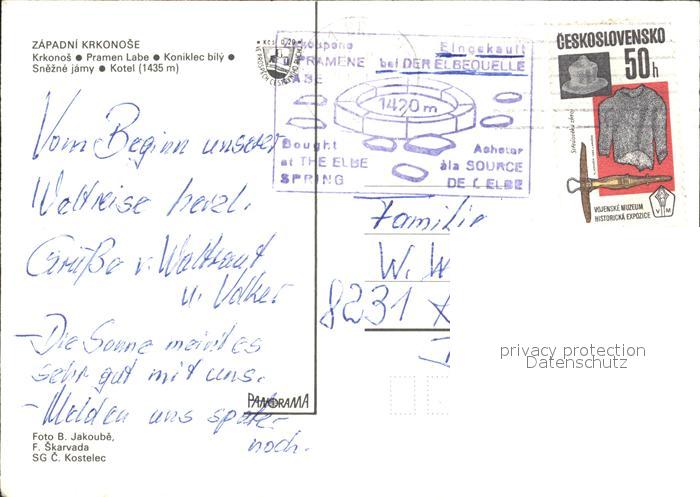 ZÁPADNÍ KRKONOŠE
Krkonoš ● Pramen Labe ● Koniklec bílý ●
Sněžné jámy ● Kotel (1435 m)
KČS 0,20
Vom Beginn unserer
Weltreise herzl.
Grüße v. Waltraut
u. Volker
- Die Sonne meint es
sehr gut mit uns.
- Melden uns später
noch.
PANORAMA
Foto B. Jakoubě,
F. Škarvada
SG Č. Kostelec
PRAMENE
Eingekauft
bei DER ELBEQUELLE
1420 m
Bought
at THE ELBE
SPRING
Acheter
àla SOURCE
DE L ELBE
ČESKOSLOVENSKO
50 h
VOJENSKÉ MUZEUM
HISTORICKÁ EXPOZICE
V M
Familie
W. W
8231
privacy protection
Datenschutz